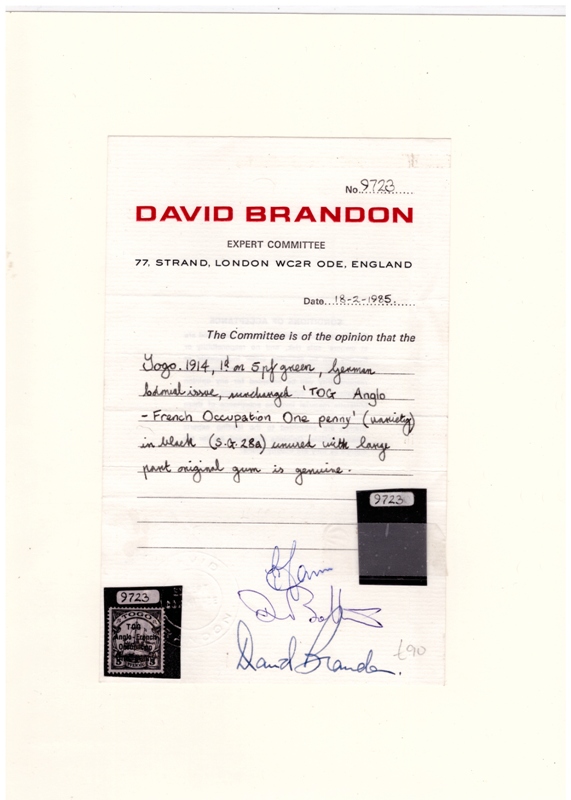 No. 9723
DAVID BRANDON
EXPERT COMMITTEE
77, STRAND, LONDON WC2R ODE, ENGLAND
Date. 18-2-1985.
The Committee is of the opinion that the
Togo. 1914, 1d on 5pf green, German
Colonial issue, surcharged 'TOG Anglo
- French Occupation One penny' (variety)
in black (S.G. 28a) unused with large
part original gum is genuine.
9723
9723
TOGO
TOG
Anglo-French
Occupation
5 5
David Brandon.
£90